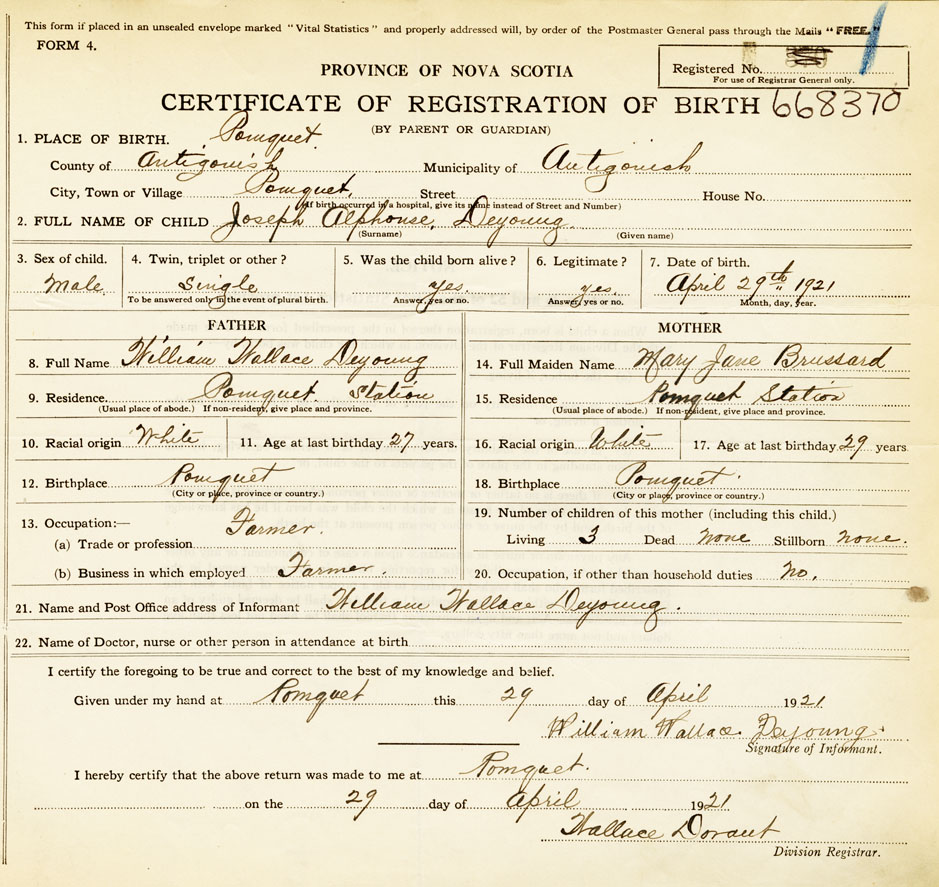 This form if placed in an unsealed envelope marked "Vital Statistics" and properly addressed will, by order of the Postmaster General pass through the Mails "FREE."
FORM 4.
Registered No.
For use of Registrar General only.
PROVINCE OF NOVA SCOTIA
CERTIFICATE OF REGISTRATION OF BIRTH 668370
(BY PARENT OR GUARDIAN)
1. PLACE OF BIRTH. Pomquet.
County of Antigonish Municipality of Antigonish
City, Town or Village Pomquet, Street House No.
(If birth occurred in a hospital, give its name instead of Street and Number)
2. FULL NAME OF CHILD Joseph Alphonse, Deyoung.
(Surname) (Given name)
3. Sex of child. 4. Twin, triplet or other? 5. Was the child born alive? 6. Legitimate? 7. Date of birth.
Male. Single yes. yes. April 29th 1921
To be answered only in the event of plural birth. Answer, yes or no. Answer, yes or no. Month, day, year.
FATHER MOTHER
8. Full Name William Wallace Deyoung 14. Full Maiden Name Mary Jane Brussard
9. Residence. Pomquet. Station 15. Residence Pomquet Station
(Usual place of abode.) If non-resident, give place and province. (Usual place of abode.) If non-resident, give place and province.
10. Racial origin White 11. Age at last birthday 27 years. 16. Racial origin White 17. Age at last birthday 29 years.
12. Birthplace Pomquet 18. Birthplace Pomquet.
(City or place, province or country.) (City or place, province or country.)
13. Occupation:— 19. Number of children of this mother (including this child.)
(a) Trade or profession Farmer. Living 3 Dead none Stillborn none.
(b) Business in which employed Farmer. 20. Occupation, if other than household duties no.
21. Name and Post Office address of Informant William Wallace Deyoung.
22. Name of Doctor, nurse or other person in attendance at birth
I certify the foregoing to be true and correct to the best of my knowledge and belief.
Given under my hand at Pomquet this 29 day of April 1921
William Wallace Deyoung.
Signature of Informant.
I hereby certify that the above return was made to me at Pomquet.
on the 29 day of April 1921
Wallace Dorant
Division Registrar.